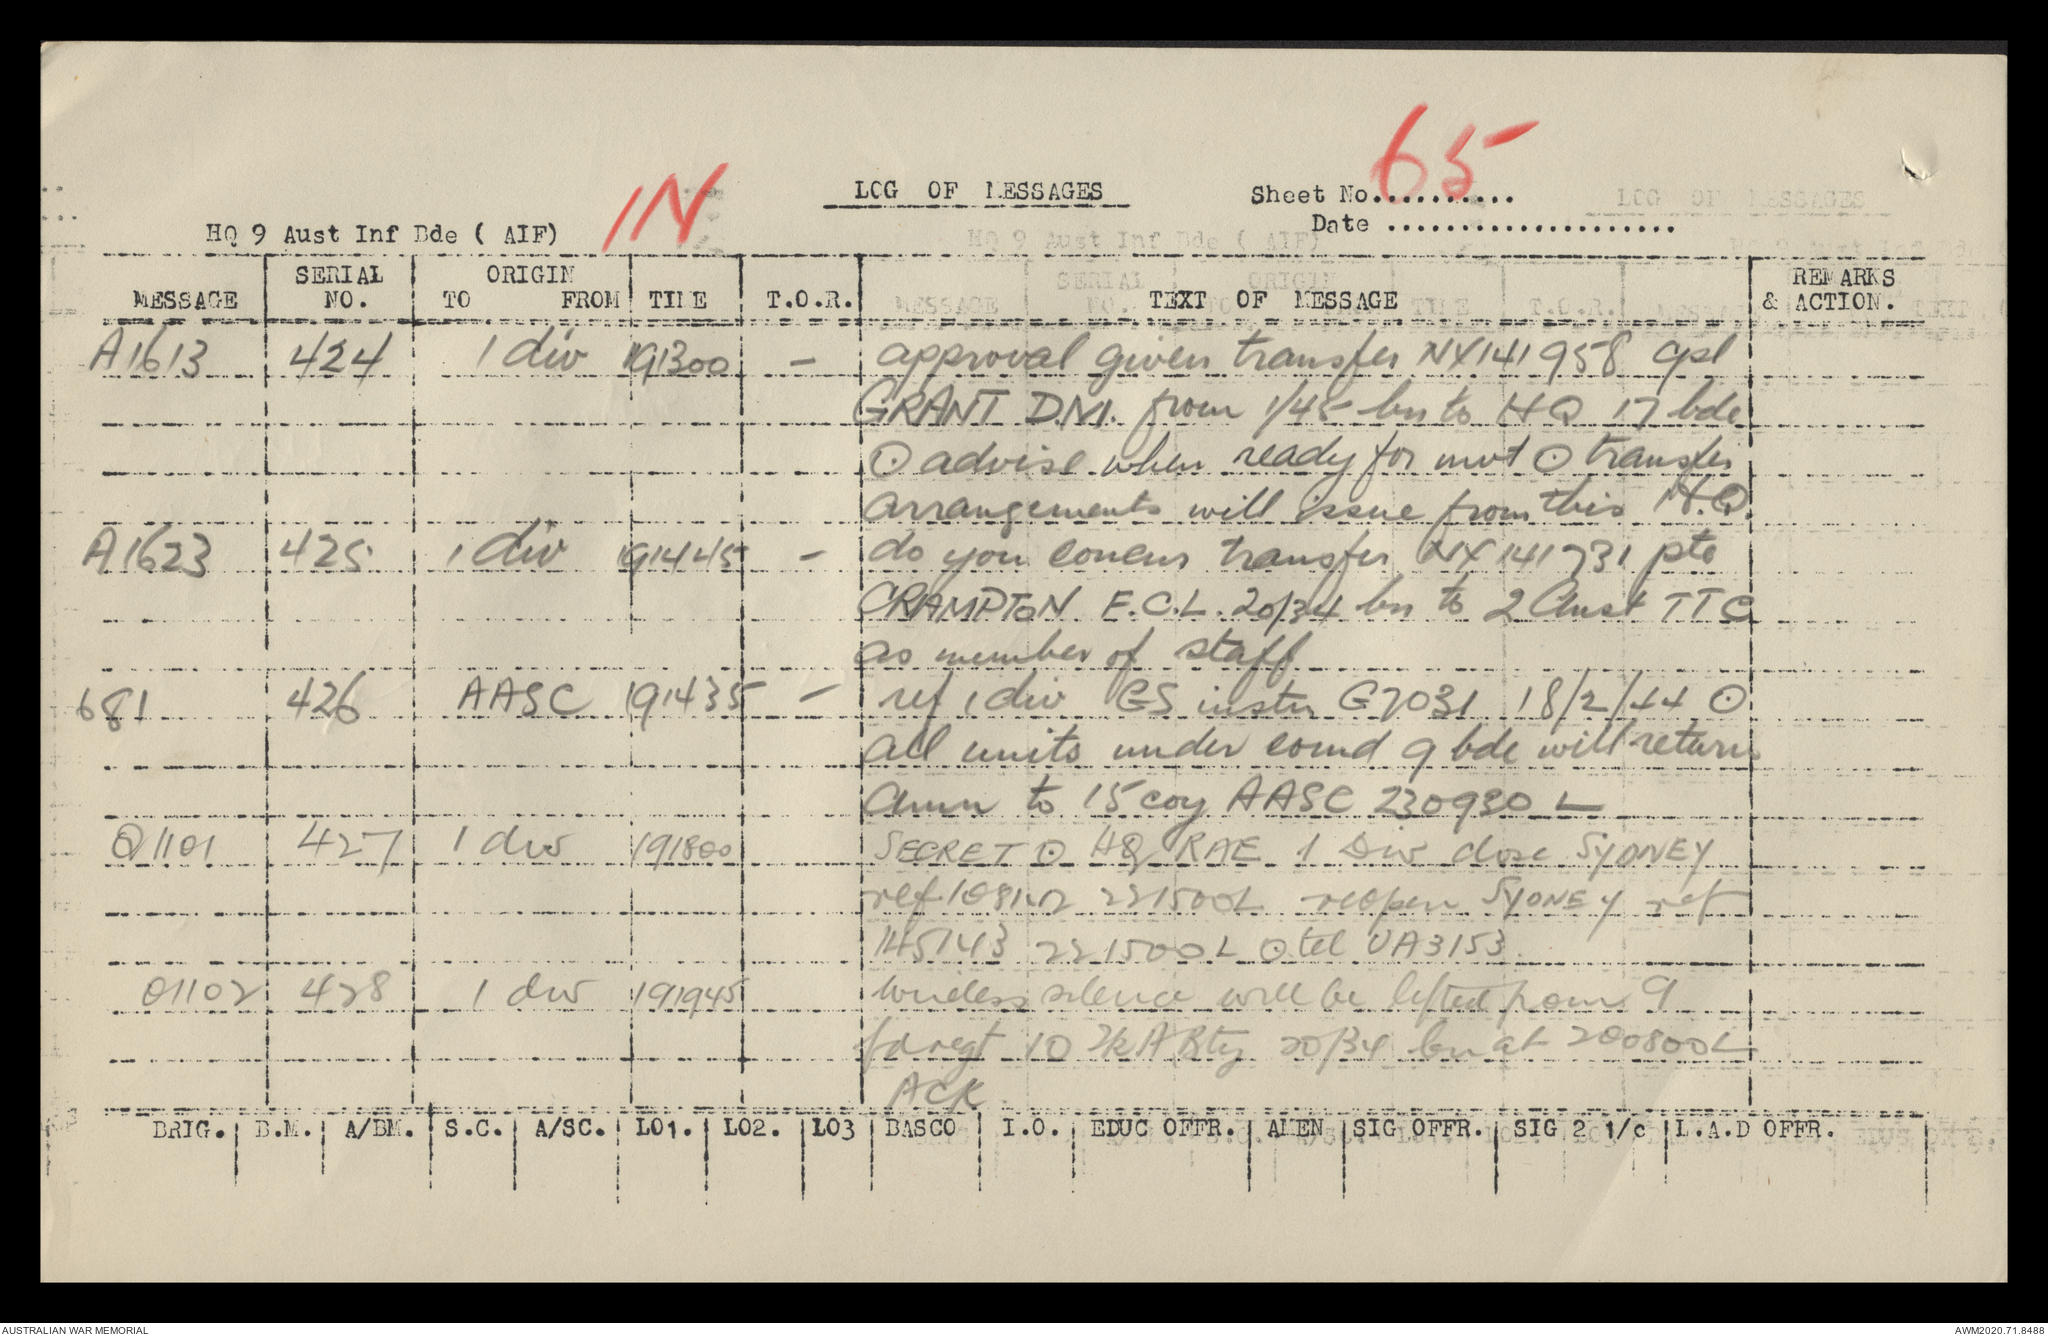 65
IN
LOG OF MESSAGES
Sheet No..........
Date .....................
HQ 9 Aust Inf Bde ( AIF)
MESSAGE | SERIAL NO. | ORIGIN TO FROM | TIME | T.O.R. | TEXT OF MESSAGE | REMARKS & ACTION.
A1613 | 424 | 1 div | 191300 | - | approval given transfer NX141958 cpl
GRANT D.M. from 1/45 bn to HQ 17 bde
⊙ advise when ready for mvt ⊙ transfer
arrangements will issue from this H.Q.
A1623 | 425 | 1 div | 191445 | - | do you concur transfer NX141731 pte
CRAMPTON E.C.L. 20/34 bn to 2 Aust TTC
as member of staff
681 | 426 | AASC | 191435 | - | ref 1 div GS instn G7031 18/2/44 ⊙
all units under comd 9 bde will return
amn to 15 coy AASC 230930 L
Q1101 | 427 | 1 div | 191800 | SECRET ⊙ HQ RAE 1 Div close SYDNEY
ref 221500L reopen SYDNEY ref
145143 221500L ⊙ tel UA3153
O1102 | 428 | 1 div | 191945 | wireless silence will be lifted from 9
fd regt 10 Bty 20/34 bn at 200800L
ACK
BRIG. | B.M. | A/BM. | S.C. | A/SC. | LO1. | LO2. | LO3 | BASCO | I.O. | EDUC OFFR. | AMEN | SIG OFFR. | SIG 2 1/c | L.A.D OFFR.
AUSTRALIAN WAR MEMORIAL
AWM2020.71.8488